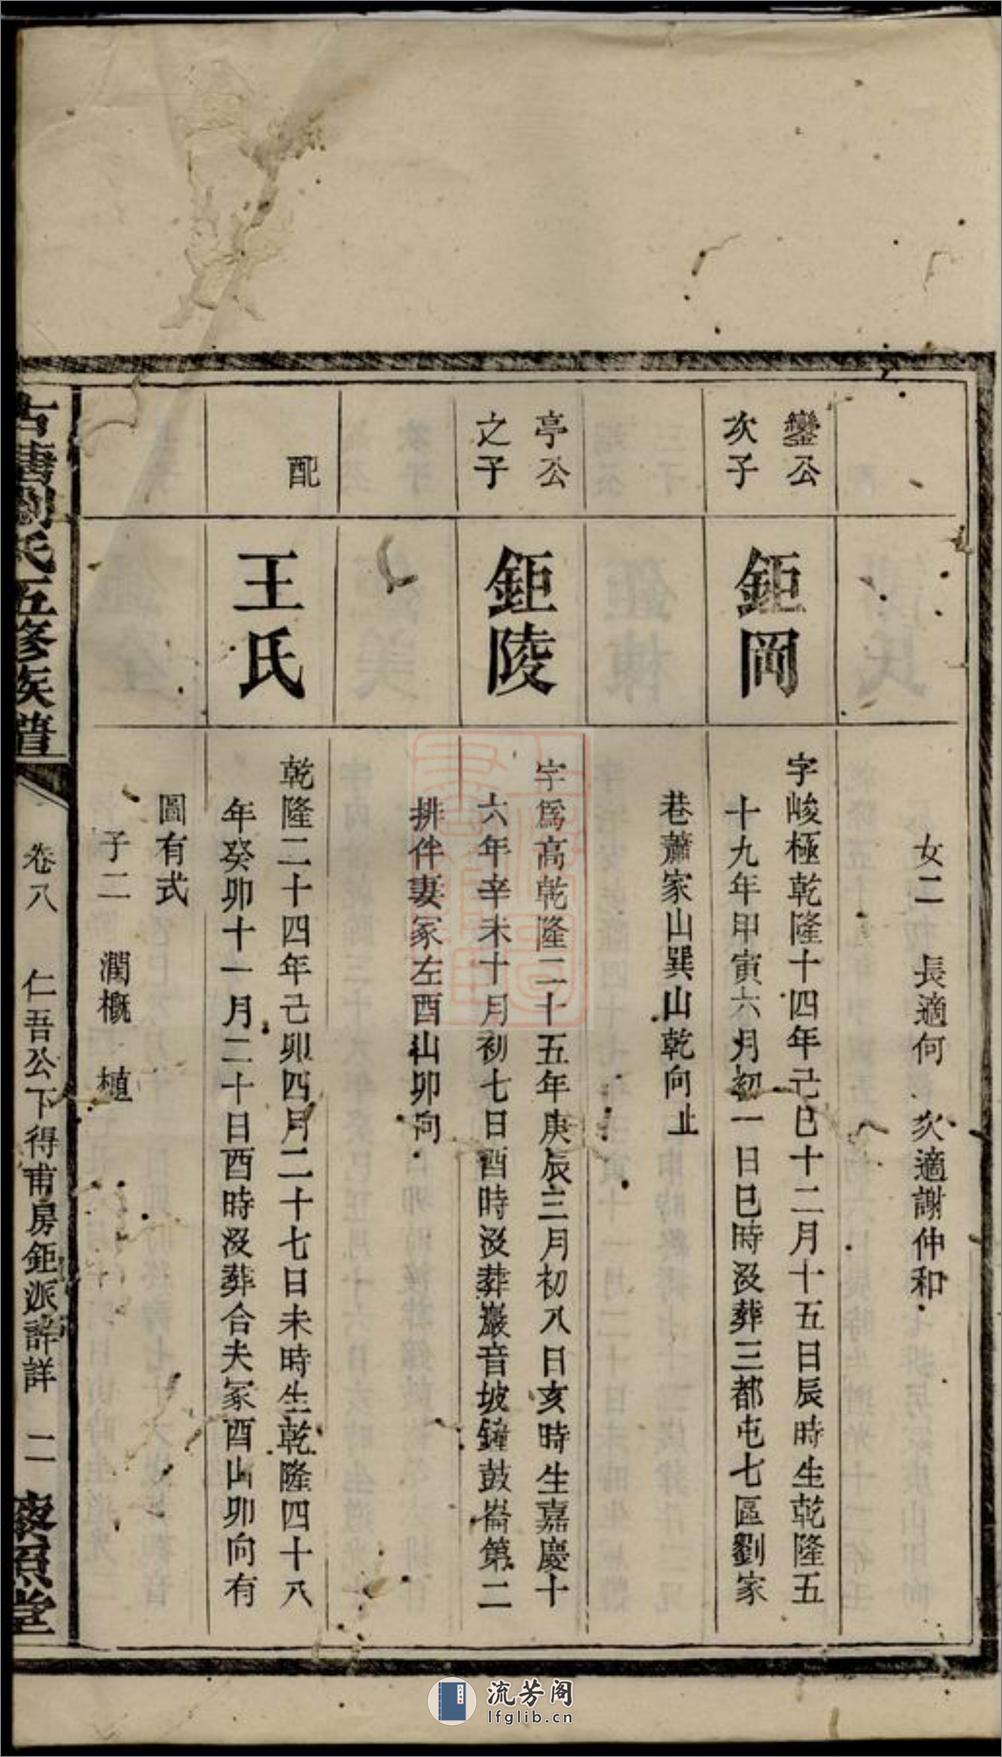 女二　長適何　次適謝仲和
鑾公
次子
鉅岡
字峻極乾隆十四年己巳十二月十五日辰時生乾隆五
十九年甲寅六月初一日巳時沒葬三都屯七區劉家
巷蕭家山巽山乾向止
亭公
之子
鉅陵
字爲高乾隆二十五年庚辰三月初八日亥時生嘉慶十
六年辛未十月初七日酉時沒葬巖音坡鐘鼓崙第二
排伴妻冢左酉山卯向
配
王氏
乾隆二十四年己卯四月二十七日未時生乾隆四十八
年癸卯十一月二十日酉時沒葬合夫冢酉山卯向有
圖有式
子二　潤概　植
古塘劉氏五修族譜
卷八　仁吾公下得甫房鉅派詳詳　二
藜照堂
流芳阁
lfglib.cn